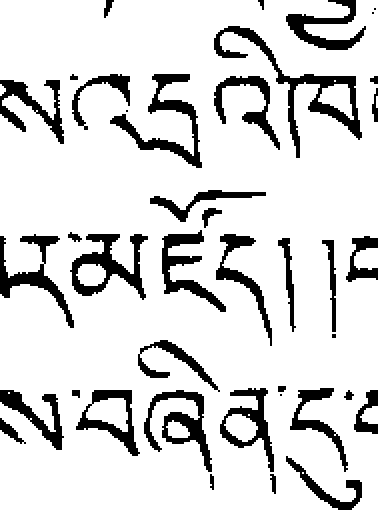 ས་འདྲ་འི
པར་མཛོད། །
ས་བཞིན་དུ་